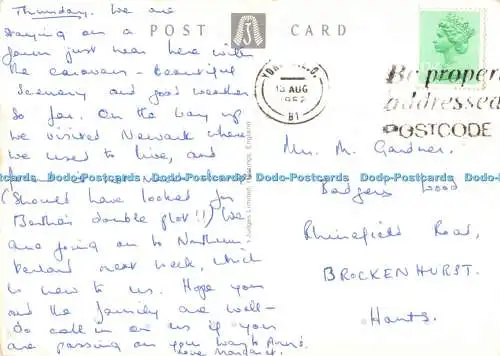 Thursday. We are
staying on a
farm just near here with
the caravan - Beautiful
Scenery and good weather
so far. On the way up
we visited Newark where
we used to live, and
(Should have looked for
Bertha's double plot!!) We
are going on to Northum-
berland next week, which
is new to us. Hope you
and the family are well -
do call in on us if you
are passing on your way to Anne's.
Love Margaret.
POST CARD
Judges Limited, Hastings, England
13 AUG
1982
B1
Be properly
addressed
POSTCODE
Mrs. M. Gardner.
Badgers Wood
Rhinefield Road,
BROCKENHURST.
Hants.
Dodo-Postcards Dodo-Postcards Dodo-Postcards Dodo-Postcards Dodo-Postcards